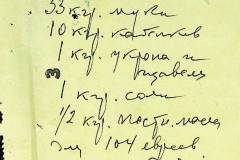 33 кгр. муки
10 кгр. кабачков
1 кгр. укропа и
щавеля
1 кгр. соли
1/2 кгр. постн. масла
Для 104 евреев